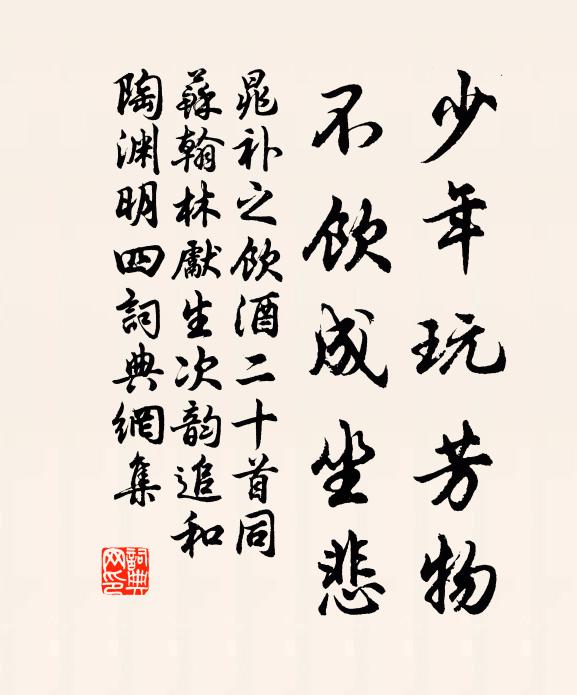 少年玩芳物
不飲成坐悲
晁补之飲酒二十首同
蘇翰林獻生次韵追和
陶渊明四詞典網集
詞典
网印